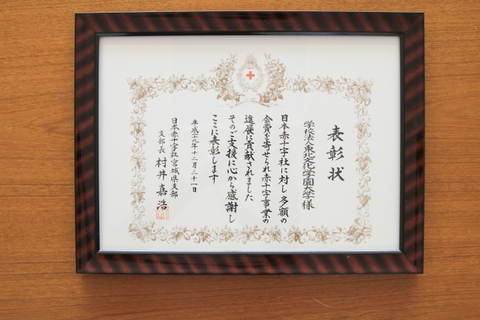 表彰状
学校法人東北文化学園大学様
日本赤十字社に対し多額の
会費を寄せられ赤十字事業の
進展に貢献されました
そのご支援に心から感謝し
ここに表彰します
平成二十九年十二月二十一日
日本赤十字社宮城県支部
支部長 村井嘉浩